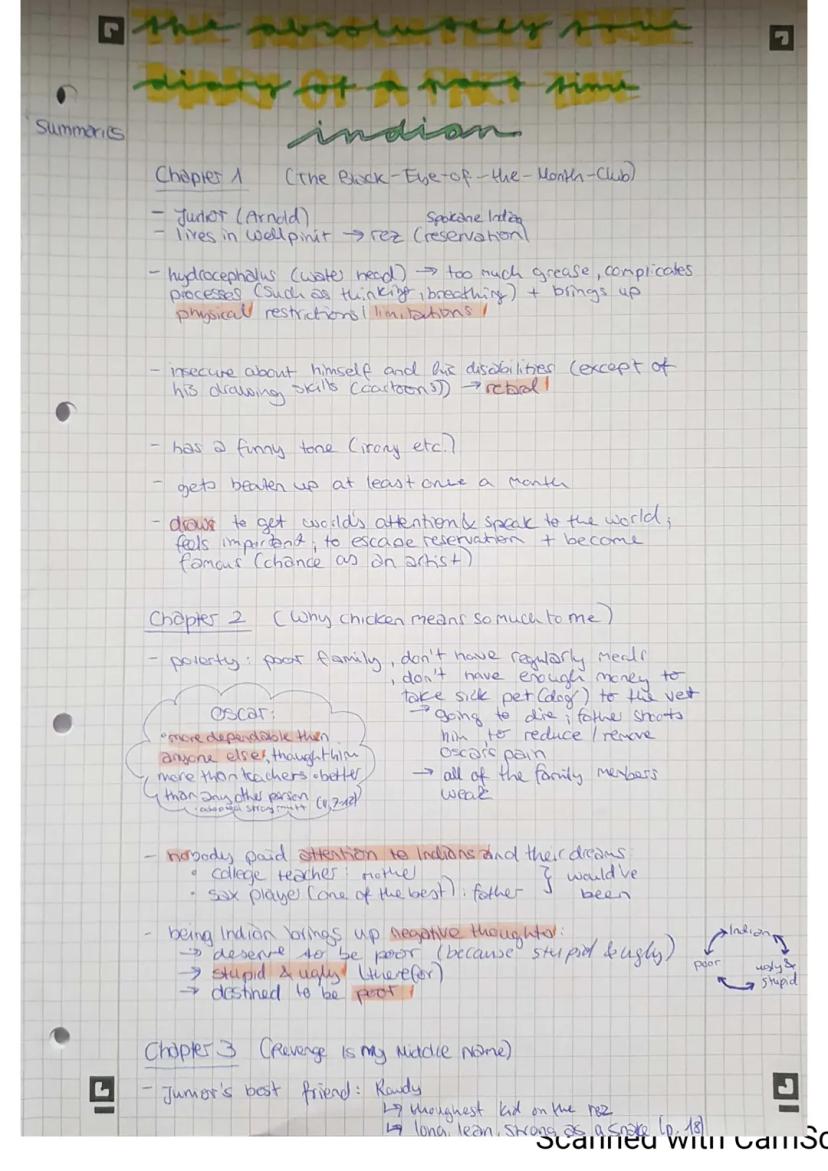 the absolutely true
diary of a part time
indian
Summaries
Chapter 1 (The Black-Eye-of-the-Month-Club)
- Junior (Arnold)
Spokane Indian
- lives in Wellpinit → rez (reservation)
- hydrocephalus (water head) → too much grease, complicates
processes (such as thinking, breathing) + brings up
physical restrictions / limitations!
- insecure about himself and his disabilities (except of
his drawing skills (cartoons)) → retard!
- has a funny tone (irony etc.)
- gets beaten up at least once a month
- draws to get world's attention & speak to the world;
feels important; to escape reservation + become
famous (chance as an artist)
Chapter 2 (Why chicken means so much to me)
- poverty: poor family, don't have regularly meals
, don't have enough money to
take sick pet (dog) to the vet
→ going to die; father shoots
him to reduce / remove
Oscar's pain
→ all of the family members
weak
Oscar:
• more dependable than
anyone else, thought him
more than teachers • better
than any other person
- nobody paid attention to Indians and their dreams:
• college teacher: mother
• sax player (one of the best): father } would've
been
- being Indian brings up negative thoughts:
→ deserve to be poor (because stupid & ugly)
→ stupid & ugly (therefor)
→ destined to be poor!
Indian
poor
ugly &
stupid
Chapter 3 (Revenge Is my Middle Name)
- Junior's best friend: Rowdy
↳ thoughest kid on the rez
↳ long, lean, strong as a snake (p. 18)
Scanned with CamSc